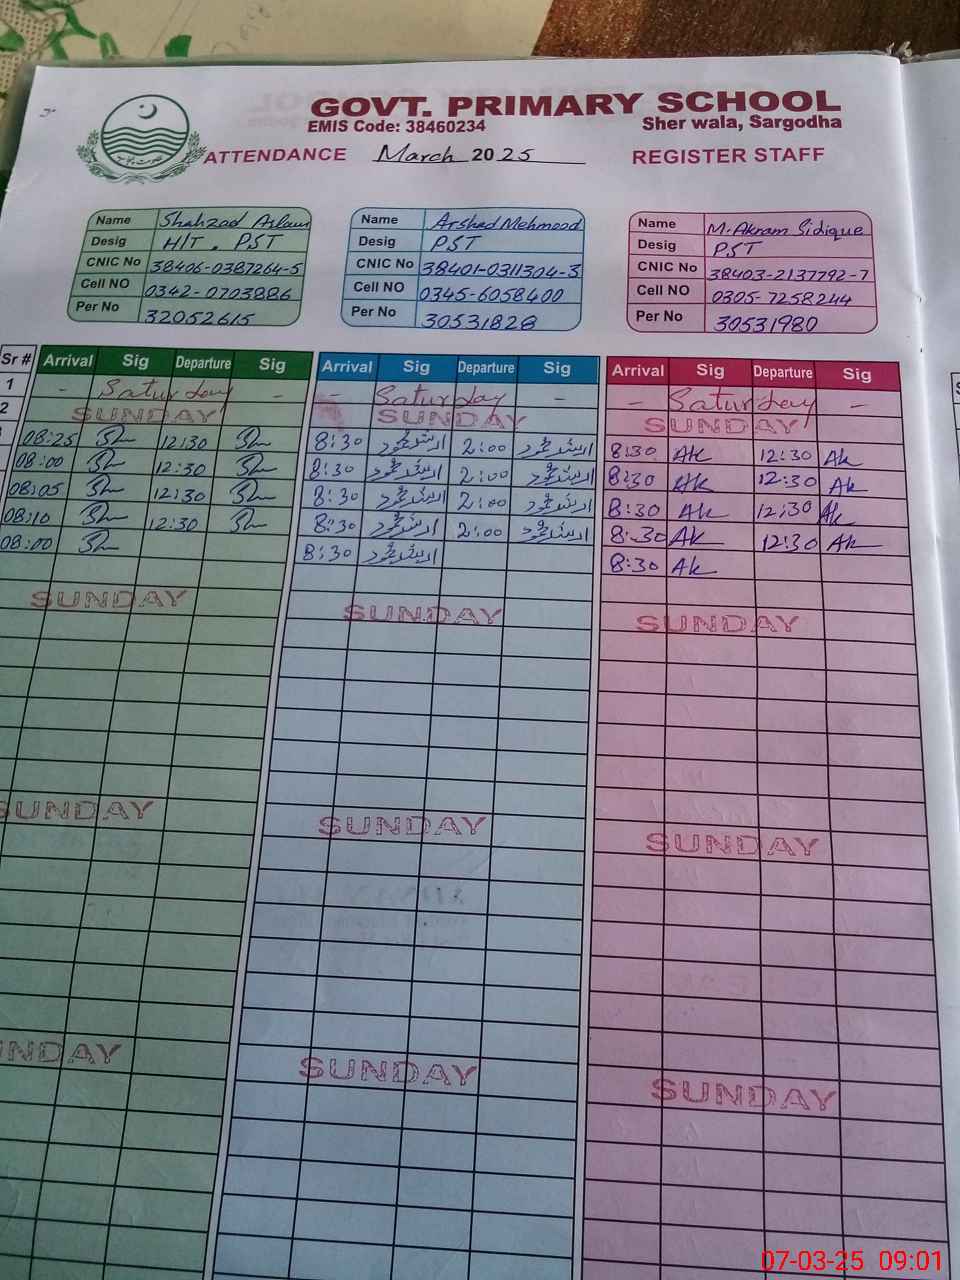 GOVT. PRIMARY SCHOOL
EMIS Code: 38460234 Sher wala, Sargodha
ATTENDANCE March 2025 REGISTER STAFF
Name Shahzad Aslam
Desig H/T. PST
CNIC No 38406-0387264-5
Cell NO 0342-0703886
Per No 32052615
Name Arshad Mehmood
Desig PST
CNIC No 38401-0311304-3
Cell NO 0345-6058400
Per No 30531828
Name M. Akram Sidique
Desig PST
CNIC No 38403-2137792-7
Cell NO 0305-7258244
Per No 30531980
Sr # Arrival Sig Departure Sig Arrival Sig Departure Sig Arrival Sig Departure Sig
1 - Saturday - - Saturday - - Saturday -
2 SUNDAY SUNDAY SUNDAY
08:25 12:30 8:30 ارشد محمود 2:00 ارشد محمود 8:30 AK 12:30 AK
08:00 12:30 8:30 ارشد محمود 2:00 ارشد محمود 8:30 AK 12:30 AK
08:05 12:30 8:30 ارشد محمود 2:00 ارشد محمود 8:30 AK 12:30 AK
08:10 12:30 8:30 ارشد محمود 2:00 ارشد محمود 8:30 AK 12:30 AK
08:00 8:30 ارشد محمود 8:30 AK
SUNDAY SUNDAY SUNDAY
SUNDAY SUNDAY SUNDAY
NDAY SUNDAY SUNDAY
07-03-25 09:01